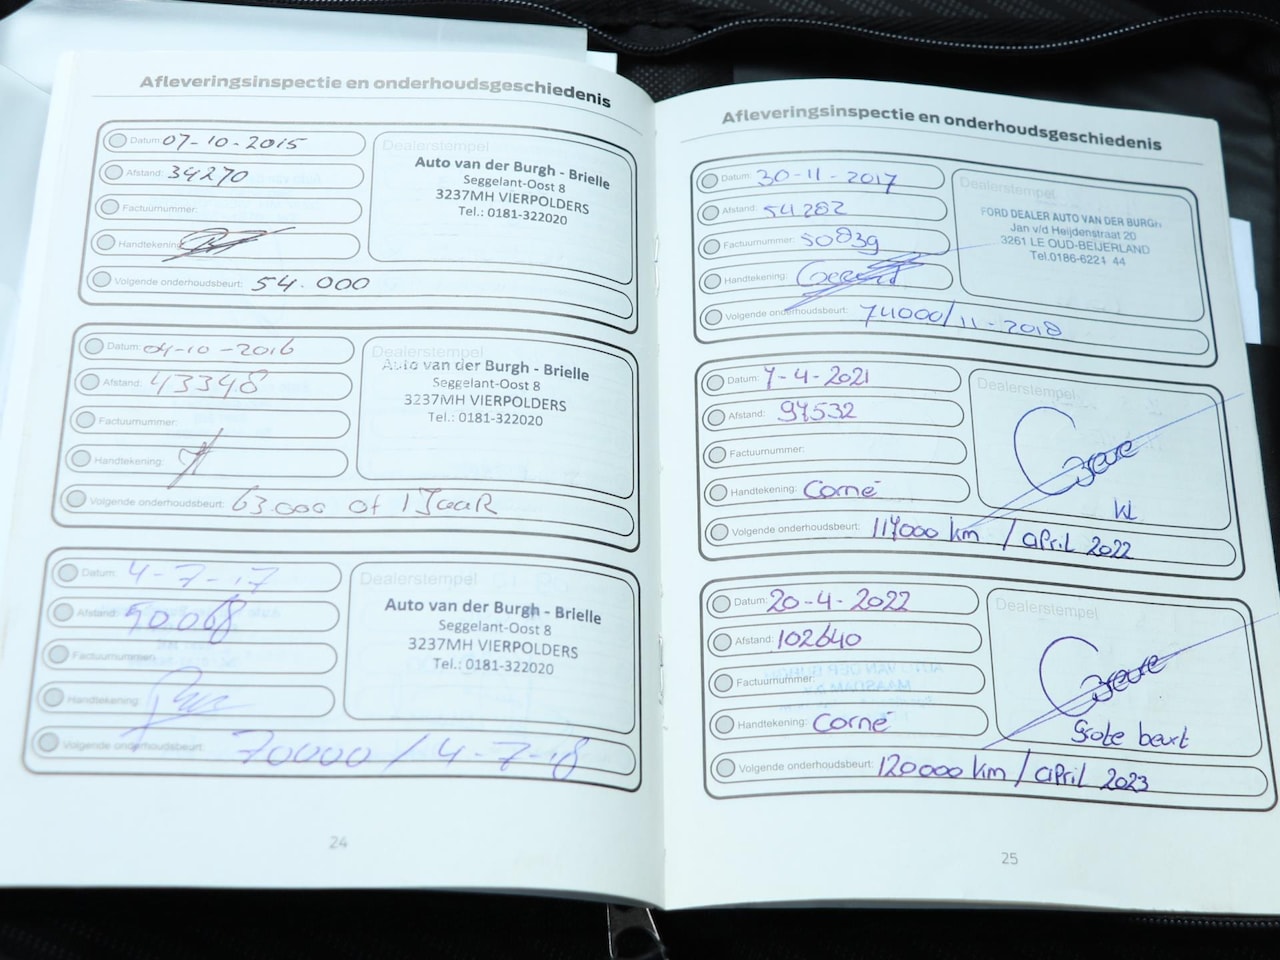 Afleveringsinspectie en onderhoudsgeschiedenis
Datum: 07-10-2015
Afstand: 34270
Factuurnummer:
Handtekening:
Volgende onderhoudsbeurt: 54.000
Dealerstempel
Auto van der Burgh - Brielle
Seggelant-Oost 8
3237MH VIERPOLDERS
Tel.: 0181-322020
Datum: 04-10-2016
Afstand: 43348
Factuurnummer:
Handtekening:
Volgende onderhoudsbeurt: 63.000 of 1 Jaar
Dealerstempel
Auto van der Burgh - Brielle
Seggelant-Oost 8
3237MH VIERPOLDERS
Tel.: 0181-322020
Datum: 4-7-17
Afstand: 50.068
Factuurnummer:
Handtekening:
Volgende onderhoudsbeurt: 70000 / 4-7-18
Dealerstempel
Auto van der Burgh - Brielle
Seggelant-Oost 8
3237MH VIERPOLDERS
Tel.: 0181-322020
24
Afleveringsinspectie en onderhoudsgeschiedenis
Datum: 30-11-2017
Afstand: 54282
Factuurnummer: 50839
Handtekening:
Volgende onderhoudsbeurt: 74000/11-2018
Dealerstempel
FORD DEALER AUTO VAN DER BURGH
Jan v/d Heijdenstraat 20
3261 LE OUD-BEIJERLAND
Tel.0186-6221 44
Datum: 7-4-2021
Afstand: 97532
Factuurnummer:
Handtekening: Corné
Volgende onderhoudsbeurt: 117000 km / april 2022
Dealerstempel
Datum: 20-4-2022
Afstand: 102640
Factuurnummer:
Handtekening: Corné
Volgende onderhoudsbeurt: 120000 km / april 2023
Dealerstempel
Grote beurt
25